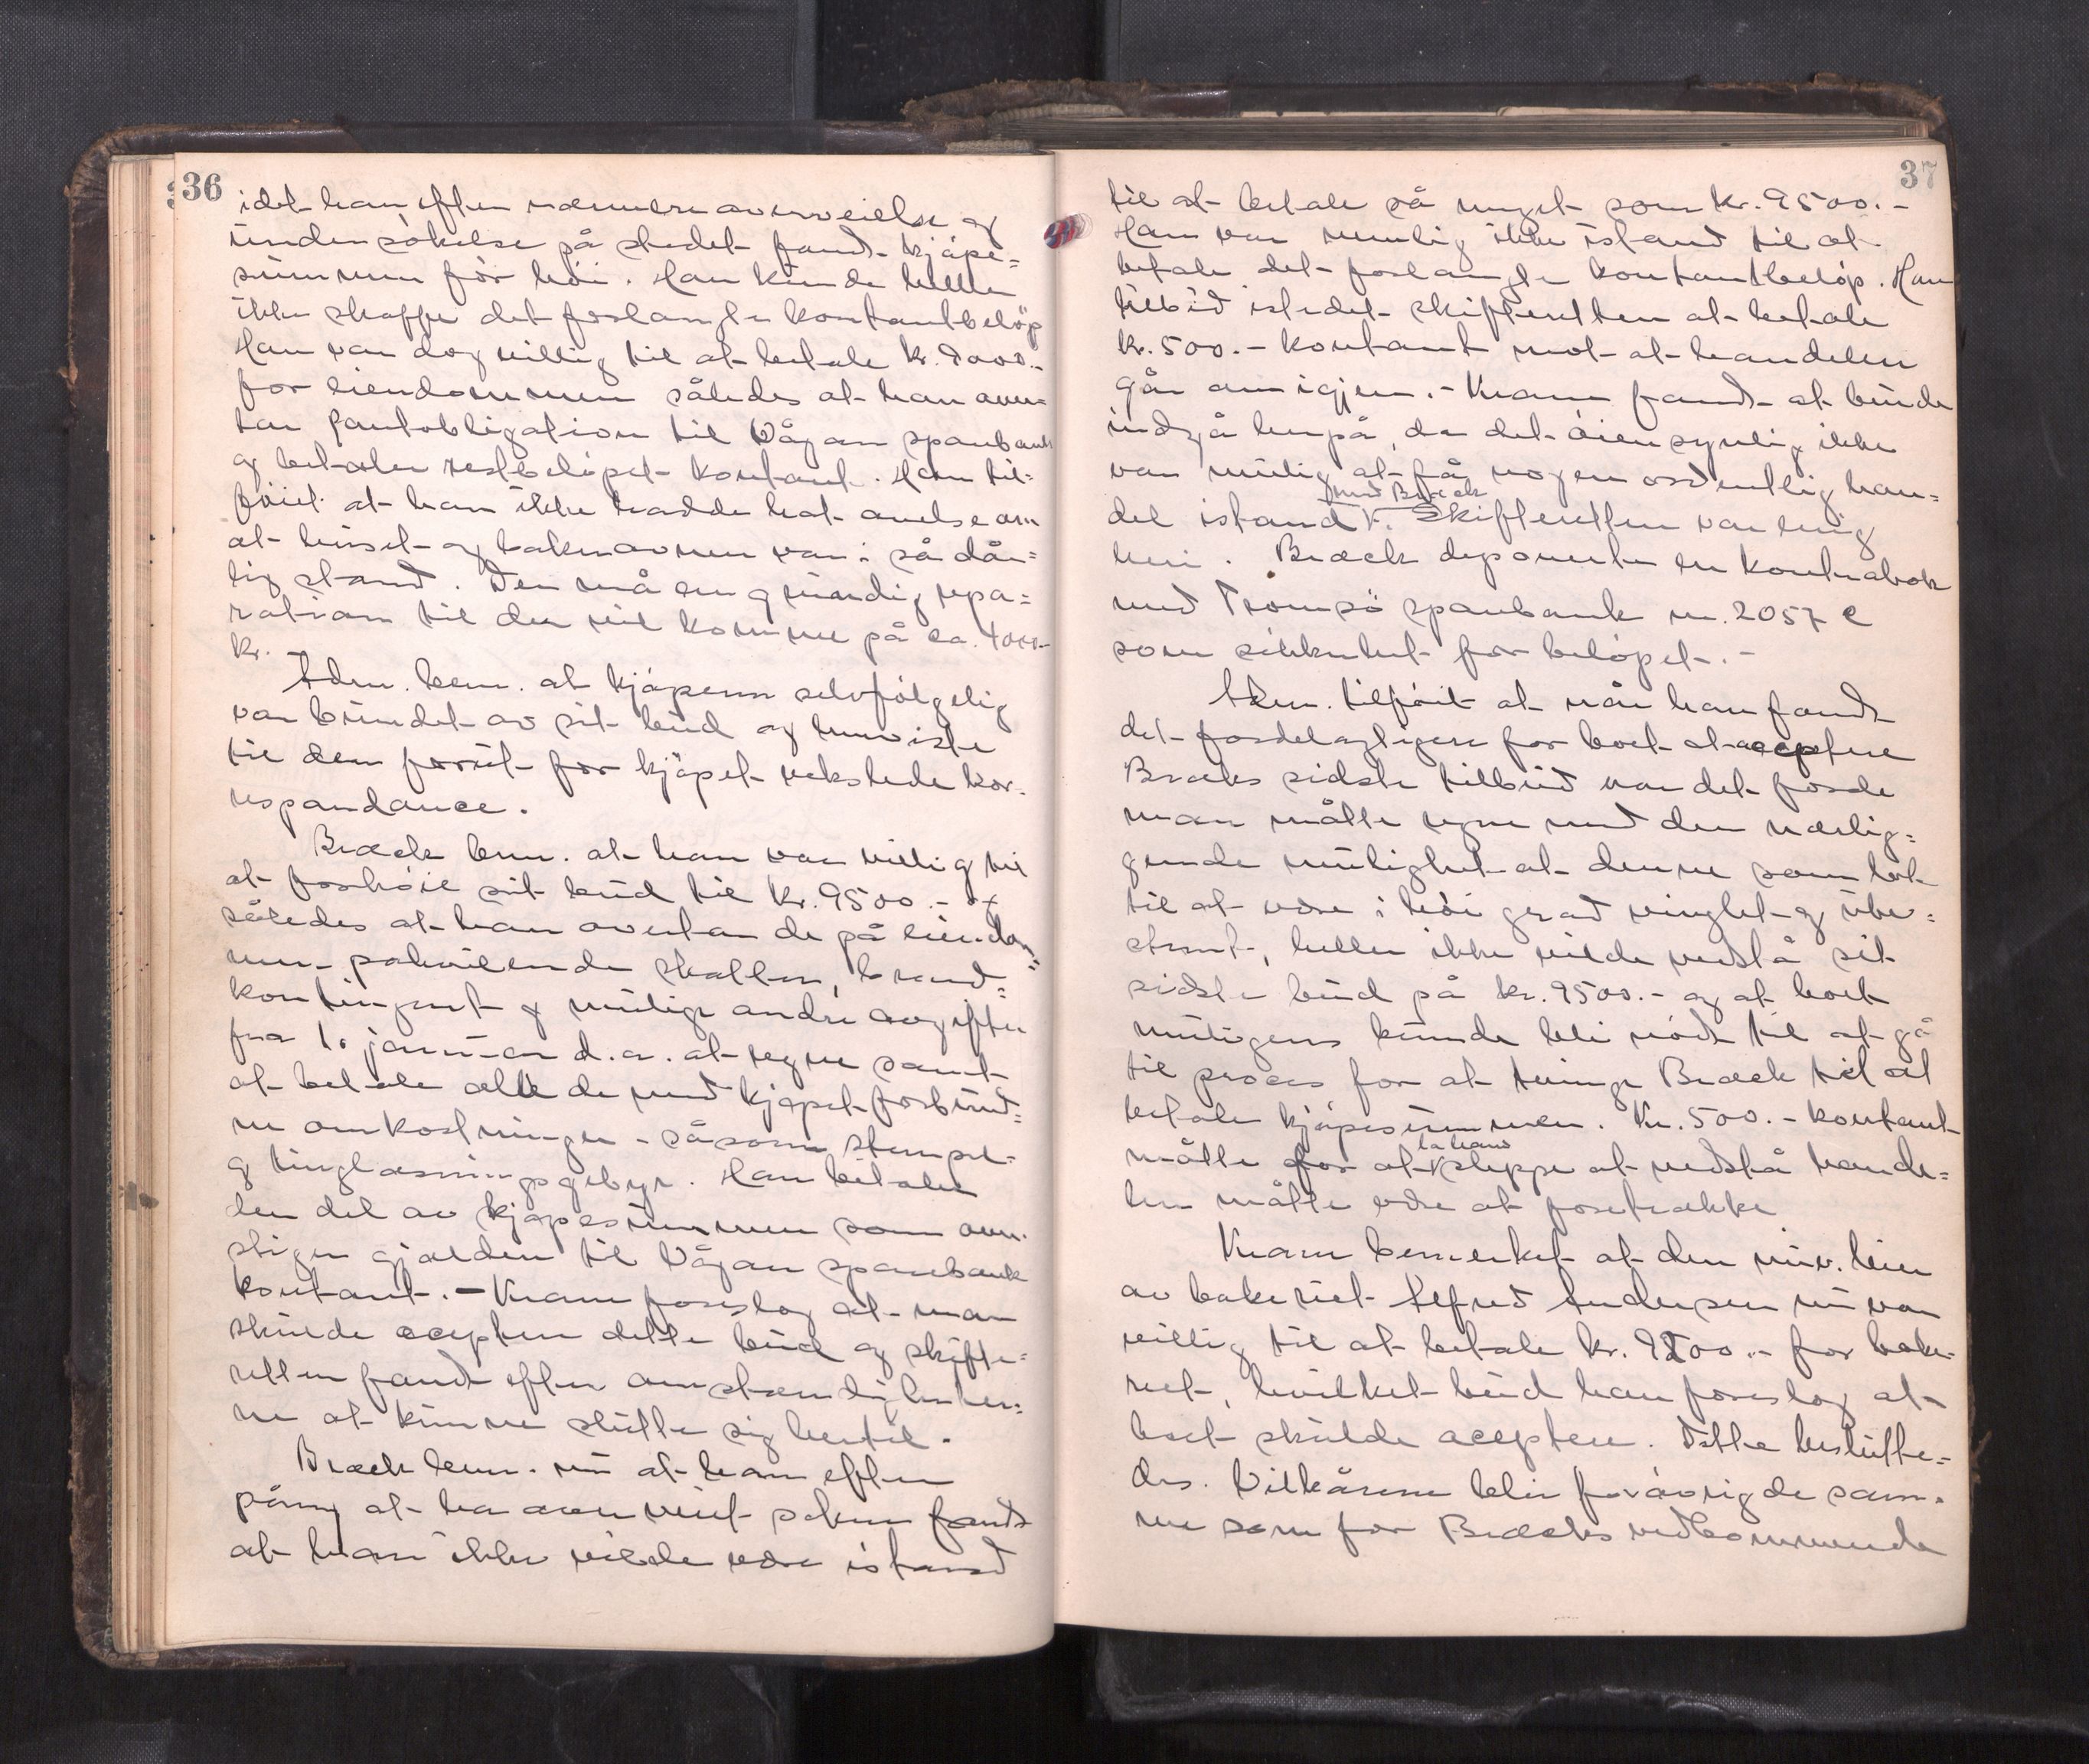 36
idet han efter nærmere overveielse og
undersøkelse på stedet fandt kjøpe=
summen for høi. Han kunde heller
ikke skaffe det forlangte kontantbeløp
Han var dog villig til at betale kr. 9000.-
for eiendommen således at han over=
tar pantobligation til Vågan sparebank
og betaler restbeløpet kontant. Han til=
føiet at han ikke hadde hat anelse om
at huset og bakerovnen var i så dår=
lig stand. Den må en grundig repa=
ration til der vil komme på ca. 4000.-
kr. -
Adm. bem. at kjøperen selvfølgelig
var bundet av sit bud og henviste
til den forut for kjøpet vekslede kor=
respondance.
Bræck bem. at han var villig til
at forhøie sit bud til kr. 9500.- og
således at han overtar de på eiendom=
men påhvilende skatter, brand=
kontingent og mulige andre avgifter
fra 1. januar d.a. at regne samt
at betale alle de med kjøpet forbund=
ne omkostninger - såsom stempel=
og tinglæsningsgebyr. Han betaler
den del av kjøpesummen som over=
stiger gjælden til Vågan sparebank
kontant. - Kræmer foreslog at man
skulde acceptere dette bud og skifte=
retten fandt efter omstændighete=
ne at kunne slutte sig hertil.
Bræck bem. nu at han efter
påny at ha overveiet saken fandt
at han ikke vilde være istand
37
til at betale så meget som kr. 9500.-
Han var nemlig ikke istand til at
betale det forlangte kontantbeløp. Han
tilbød istedet skifteretten at betale
kr. 500.- kontant mot at handelen
går om igjen. - Kræmer fandt at burde
indgå herpå, da det øiensynlig ikke
var mulig at få nogen ordentlig han=
med Bræck
del istand V. Skifteretten var enig
heri. Bræck deponerte en kontrabok
med Tromsø sparebank nr. 2057 C
som sikkerhet for beløpet. -
Adm. tilføiet at når han fandt
det fordelagtigere for boet at acceptere
Bræcks sidste tilbud var det fordi
man måtte regne med den nærlig=
gende mulighet at denne som lot
til at være i høi grad vinglet og ube=
stemt, heller ikke vilde vedstå sit
sidste bud på kr. 9500.- og at boet
muligens kunde bli nødt til at gå
til proces for at tvinge Bræck til at
betale kjøpesummen. Kr. 500.- kontant
la ham
måtte for at V slippe at vedstå hande=
len måtte være at foretrække
Kræmer bemerket at den nuv. leier
av bakeriet Alfred Andersen nu var
villig til at betale kr. 9500.- for bake=
riet, hvilket bud han foreslog at
boet skulde acceptere. Dette beslutte=
des. Vilkårene blir forøvrig de sam=
me som for Bræcks vedkommende